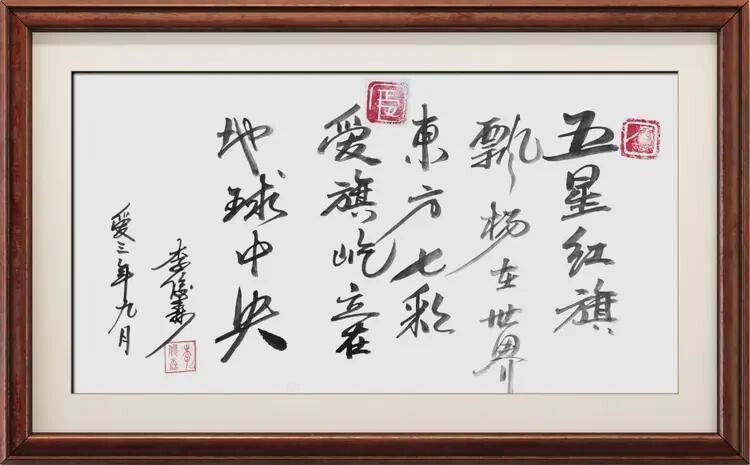 五星红旗
飘杨在世界
東方七彩
愛旗屹立在
地球中央
愛三年九月
李俊森